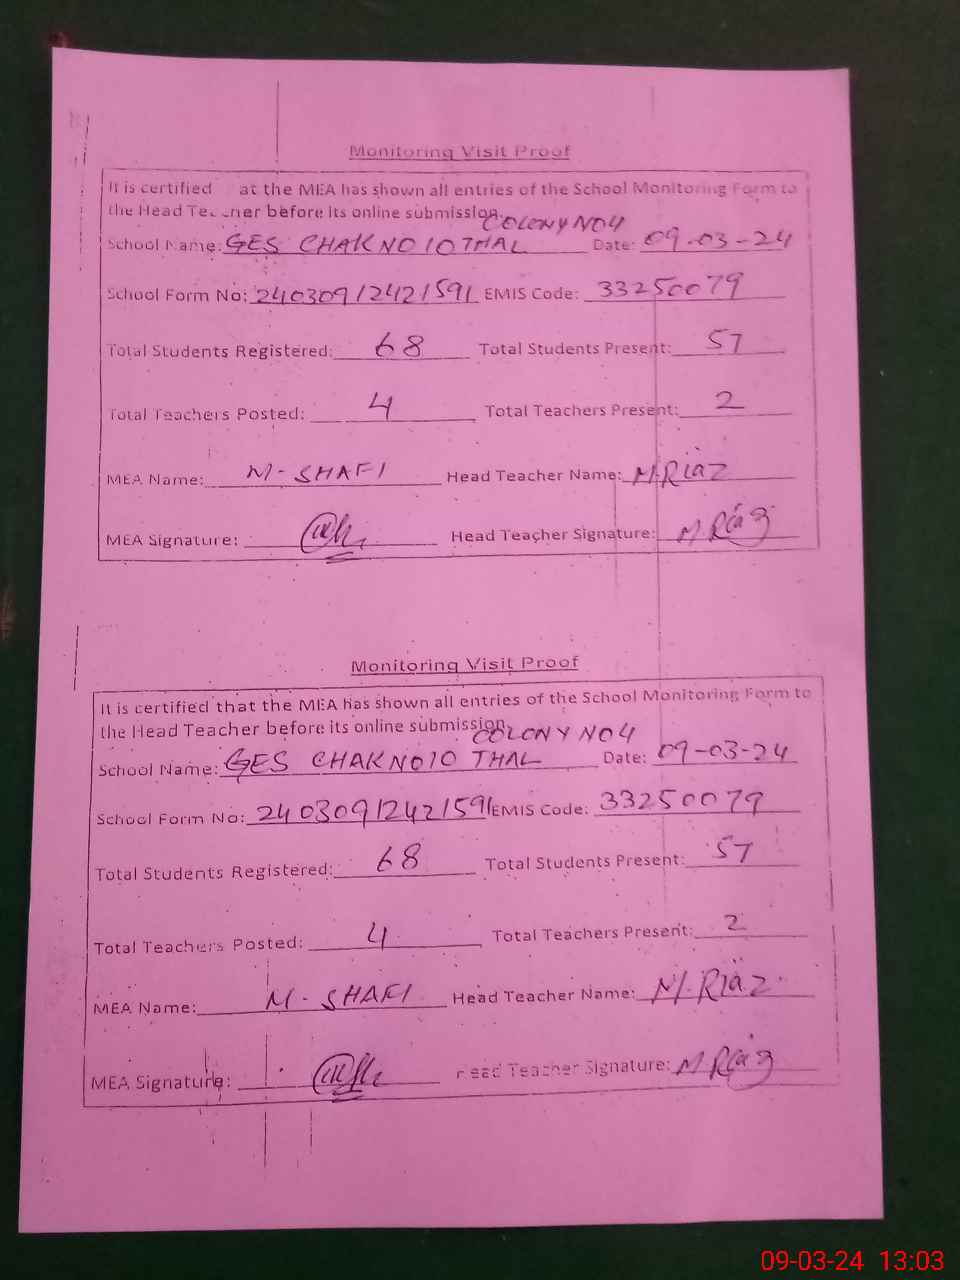 Monitoring Visit Proof
It is certified at the MEA has shown all entries of the School Monitoring Form to
the Head Teacher before its online submission.
COLONY NO 4
School Name: GES CHAK NO 10 THAL Date: 09-03-24
School Form No: 24030912421591 EMIS Code: 33250079
Total Students Registered: 68 Total Students Present: 57
Total Teachers Posted: 4 Total Teachers Present: 2
MEA Name: M-SHAFI Head Teacher Name: M.Riaz
MEA Signature: Head Teacher Signature: M Riaz
Monitoring Visit Proof
It is certified that the MEA has shown all entries of the School Monitoring Form to
the Head Teacher before its online submission.
COLONY NO 4
School Name: GES CHAK NO 10 THAL Date: 09-03-24
School Form No: 24030912421591 EMIS Code: 33250079
Total Students Registered: 68 Total Students Present: 57
Total Teachers Posted: 4 Total Teachers Present: 2
MEA Name: M-SHAFI Head Teacher Name: M.Riaz
MEA Signature: Head Teacher Signature: M Riaz
09-03-24 13:03